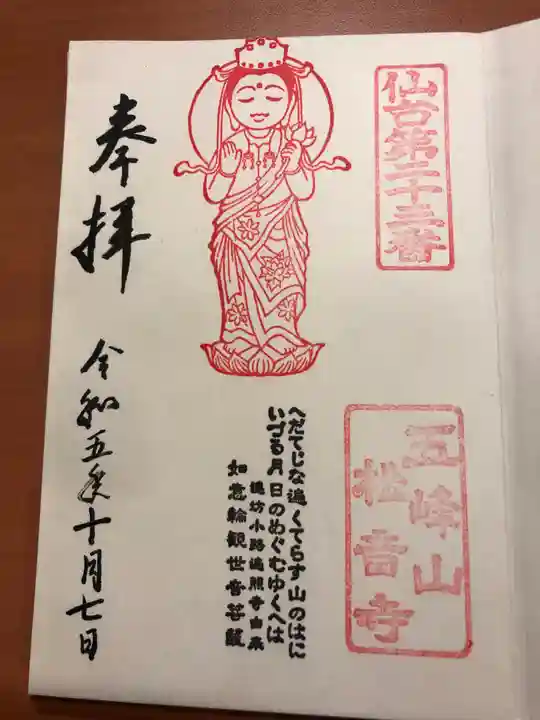 仙台第二十三番
五峰山
松音寺
へだてじな遍くてらす山のはに
いづる月日のめぐむゆくへは
遍坊小路遍照寺由来
如意輪観世音菩薩
奉拝
令和五年十月七日